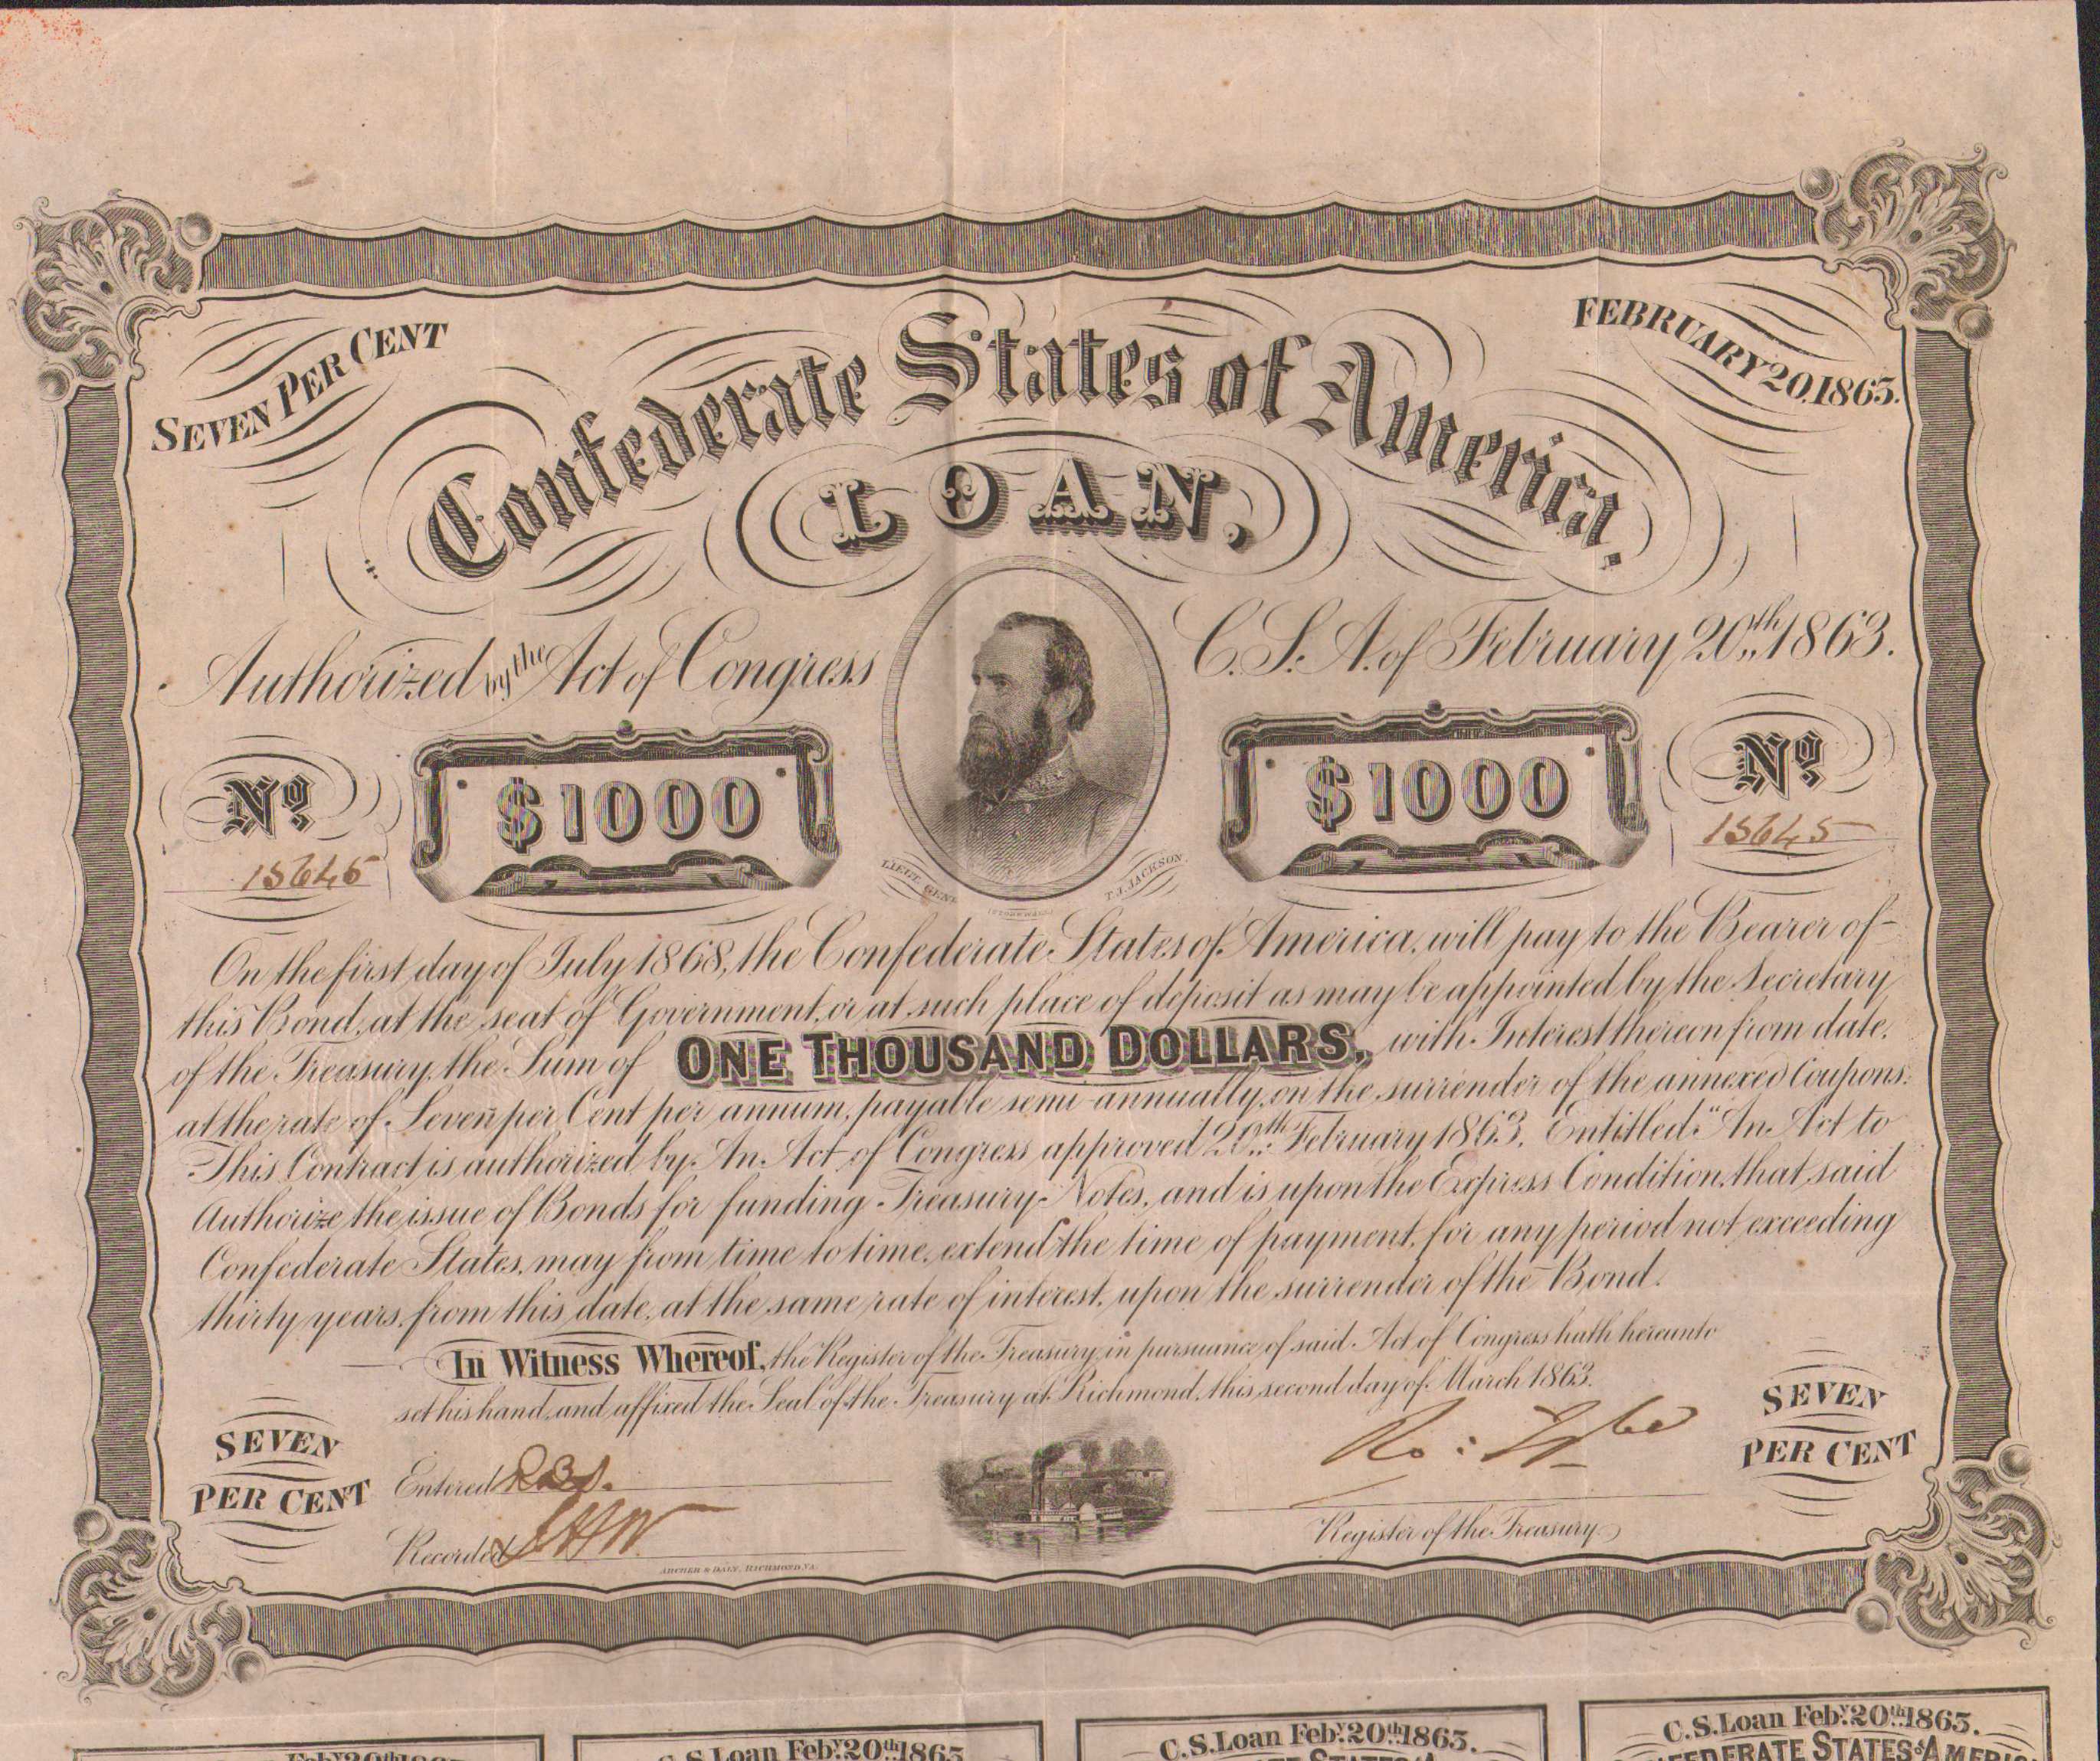 SEVEN PER CENT
FEBRUARY 20, 1863.
Confederate States of America.
LOAN,
Authorized by the Act of Congress C.S.A. of February 20th 1863.
No
$1000
$1000
No
15645
15645
LIEUT. GENL
T.J. JACKSON
(STONEWALL)
On the first day of July 1868, the Confederate States of America, will pay to the Bearer of
this Bond, at the seat of Government, or at such place of deposit as may be appointed by the Secretary
of the Treasury, the Sum of ONE THOUSAND DOLLARS, with Interest thereon from date,
at the rate of Seven per Cent per annum, payable semi-annually, on the surrender of the annexed Coupons.
This Contract is authorized by An Act of Congress approved 20th February 1863, Entitled "An Act to
Authorize the issue of Bonds for funding Treasury Notes, and is upon the Express Condition, that said
Confederate States, may from time to time, extend the time of payment, for any period not exceeding
thirty years from this date, at the same rate of interest, upon the surrender of the Bond.
In Witness Whereof, the Register of the Treasury, in pursuance of said Act of Congress hath hereunto
set his hand, and affixed the Seal of the Treasury at Richmond, this second day of March 1863.
SEVEN
PER CENT
SEVEN
PER CENT
Entered
Ro: Tyler
Recorded
Register of the Treasury
ARCHER & DALY, RICHMOND VA.
C.S. Loan Feby. 20th 1863.
C.S. Loan Feby. 20th 1863.